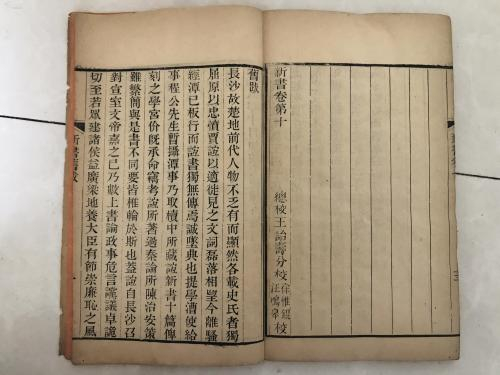 新書卷第十
總校王詒壽分校 汪鳴皋 校
舊跋
長沙故楚地前代人物不乏有而顯然各載史氏者獨
屈原以忠憤賈誼以適徙見之文詞磊落相望今離騷
經潭已板行而誼書獨無傳焉誠墜典也提學漕使給
事程公先生暫攝潭事乃取櫝中所藏誼新書十篇俾
刻之學宮价旣承命竊考誼所著過秦論所陳治安策
雖繁簡與是書不同要皆椎輪於斯也蓋誼自長沙召
對宣室文帝嘉之已乃數上書論政事危言讜議卓詭
切至若眾建諸侯益廣梁地養大臣有節崇廉恥之風
新書舊跋